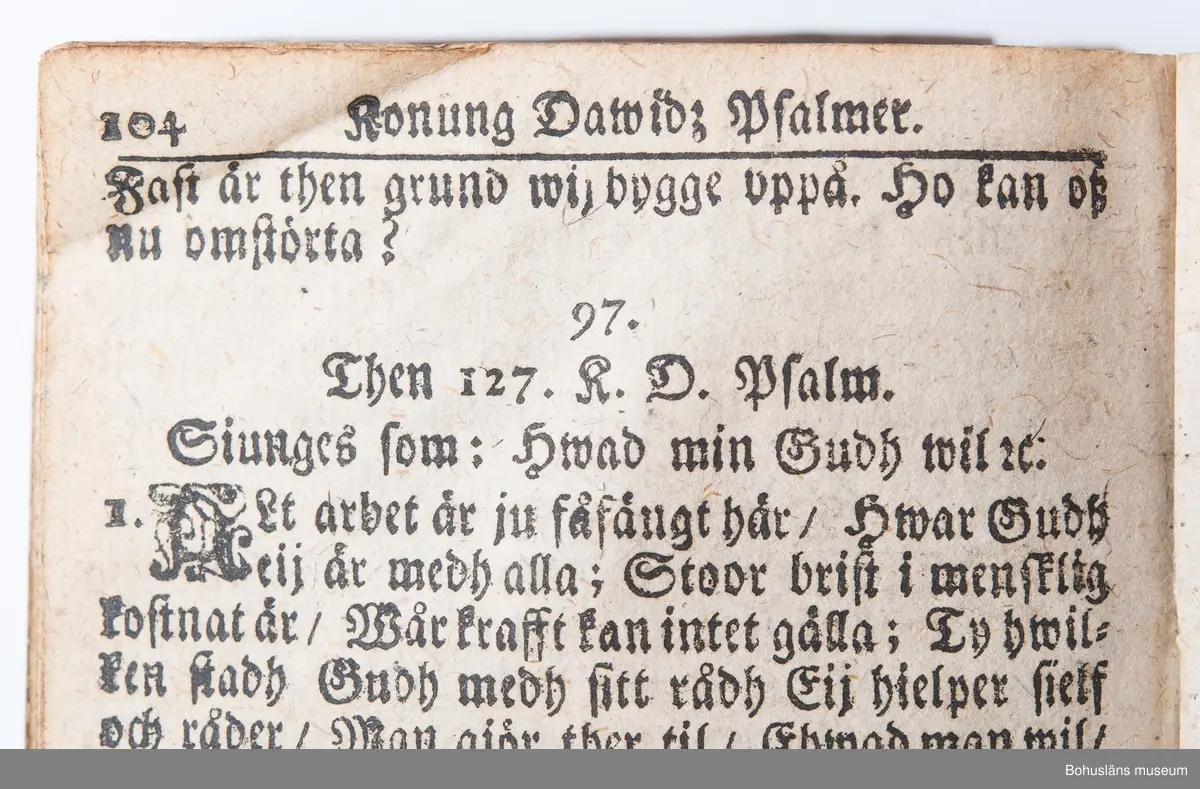 104 Konung Dawidz Psalmer.
Fast är then grund wij bygge vppå. Ho kan oß
nu omstörta?
97.
Then 127. K. D. Psalm.
Siunges som: Hwad min Gudh wil ꝛc:
1. ALt arbet är ju fåfängt här / Hwar Gudh
eij är medh alla; Stoor brist i mensklig
kostnat är / Wår krafft kan intet gälla; Ty hwil-
ken stadh Gudh medh sitt rådh Eij hielper sielf
och råder / Man giör ther til / Ehwad man wil /
Bohusläns museum